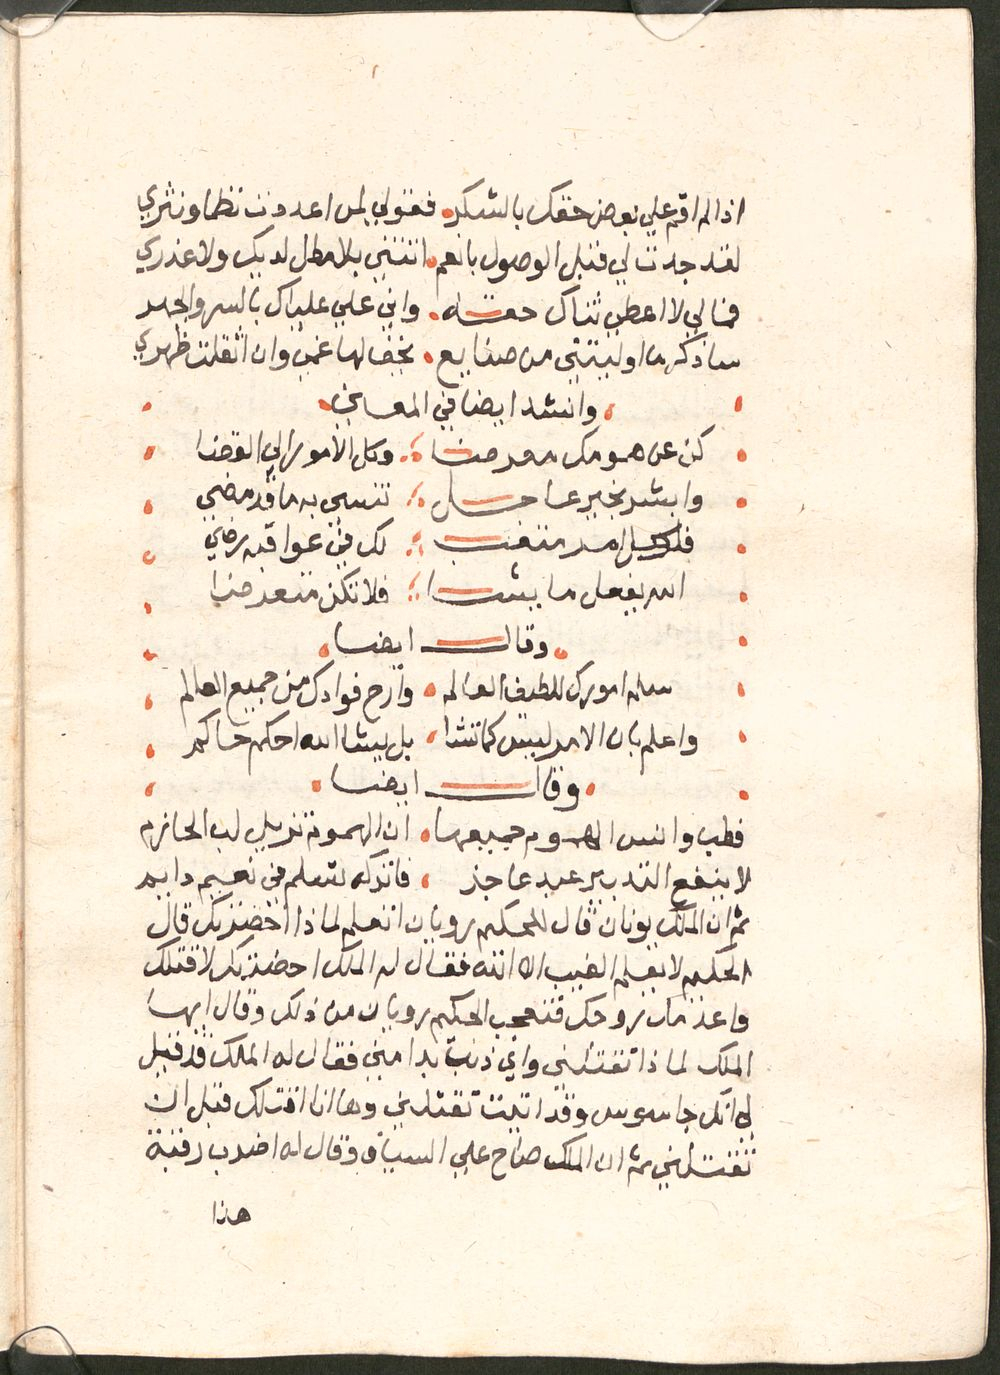 اذا لم اقم علي بعض حقك بالشكر فقولي لمن اعددت نظما ونثري
لقد جدت لي قبل الوصول بانعم اتتني بلا مطل لديك ولا عذري
فمالي لا اعطي ثناك حقه واثني علي علياك بالسر والجهر
ساذكر ما اوليتني من صنايع يخف لها غمي وان اثقلت ظهري
وانشد ايضا في المعاني
كن عن همومك معرضا وكل الامور الي القضا
وابشر بخير عاجل تنسي به ما قد مضي
فلكل امر متعب لك في عواقبه رضي
الله يفعل ما يشا فلا تكن متعرضا
وقال ايضا
سلم امورك للطيف العالم وارح فوادك من جميع العالم
واعلم بان الامر ليس كما تشا بل يشا الله احكم حاكم
وقال ايضا
فطب وانس الهموم جميعها ان الهموم تزيل لب الحازم
لا ينفع التدبير عبد عاجز فاتركه تسلم في نعيم دايم
ثم ان الملك يونان قال للحكيم رويان اتعلم لماذا احضرتك قال
الحكيم لا يعلم الغيب الا الله فقال له الملك احضرتك لاقتلك
واعدمك روحك فتعجب الحكيم رويان من ذلك وقال ايها
الملك لماذا تقتلني واي ذنب بدا مني فقال له الملك قد قيل
لي انك جاسوس وقد اتيت تقتلني وها انا اقتلك قبل ان
تقتلني ثم ان الملك صاح علي السياف وقال له اضرب رقبة
هذا